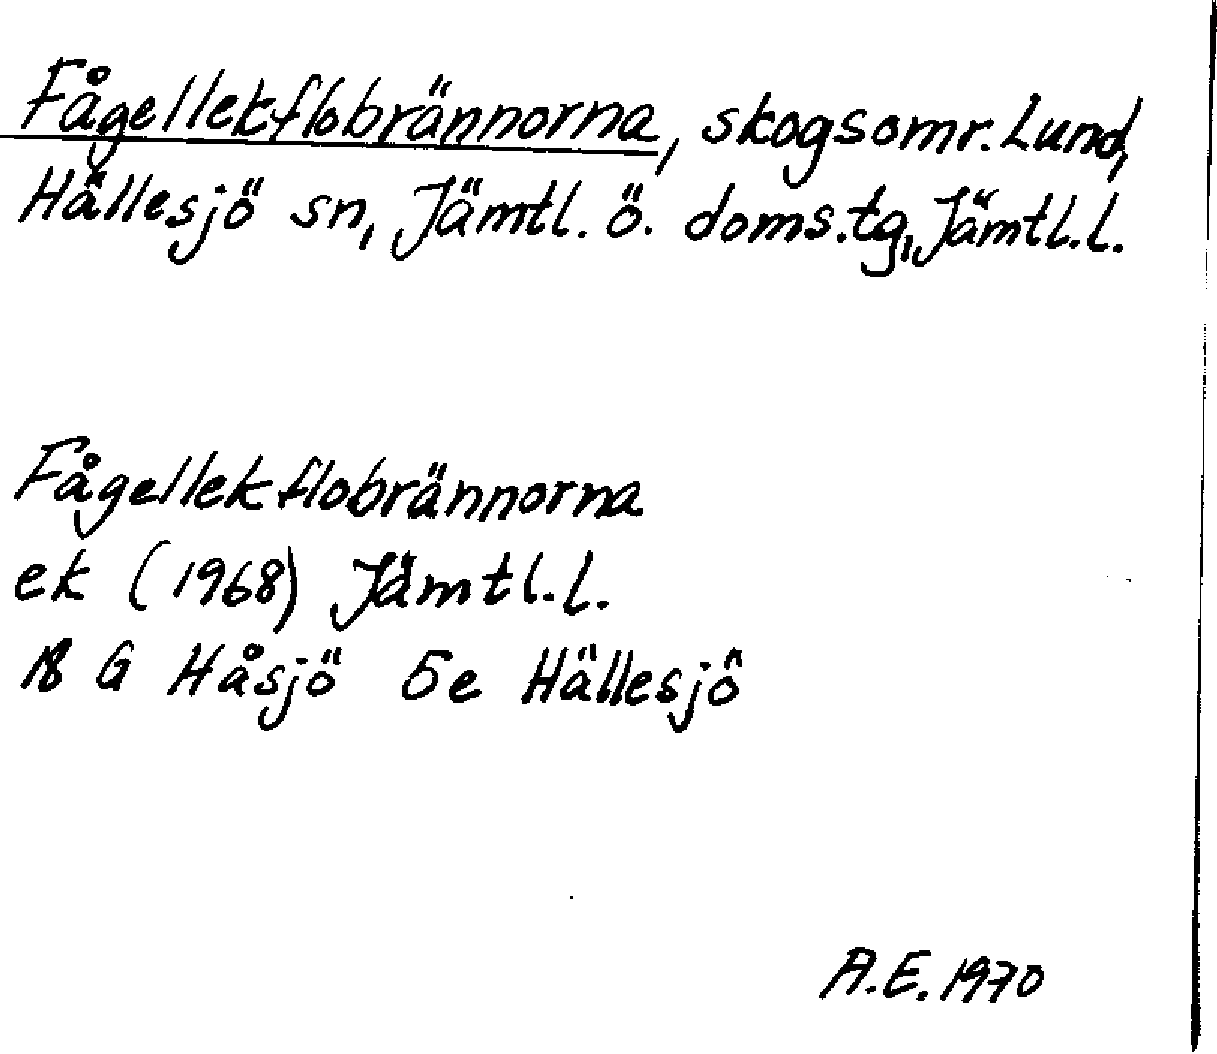 Fågellekflobrännorna, skogsomr. Lund,
Hällesjö sn, Jämtl. ö. doms.tg, Jämtl.l.
Fågellekflobrännorna
ek (1968) Jämtl.l.
18 G Håsjö 5e Hällesjö
A.E. 1970